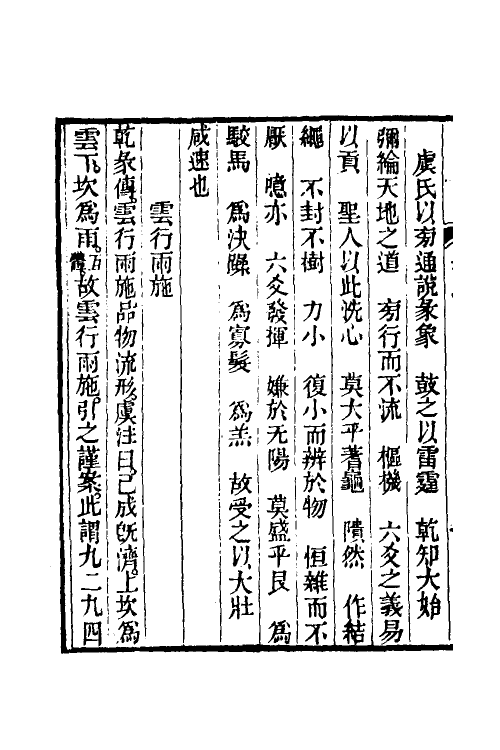 虞氏以旁通說彖象　鼓之以雷霆　乾知大始
彌綸天地之道　旁行而不流　樞機　六爻之義易
以貢　聖人以此洗心　莫大乎蓍龜　隤然　作結
繩　不封不樹　力小　復小而辨於物　恒雜而不
厭　噫亦　六爻發揮　嫌於无陽　莫盛乎艮　爲
駁馬　爲決躁　爲寡髮　爲羔　故受之以大壯
咸速也
雲行雨施
乾彖傳雲行雨施品物流形虞注曰已成旣濟上坎爲
雲下坎爲雨故雲行雨施引之謹案此謂九二九四